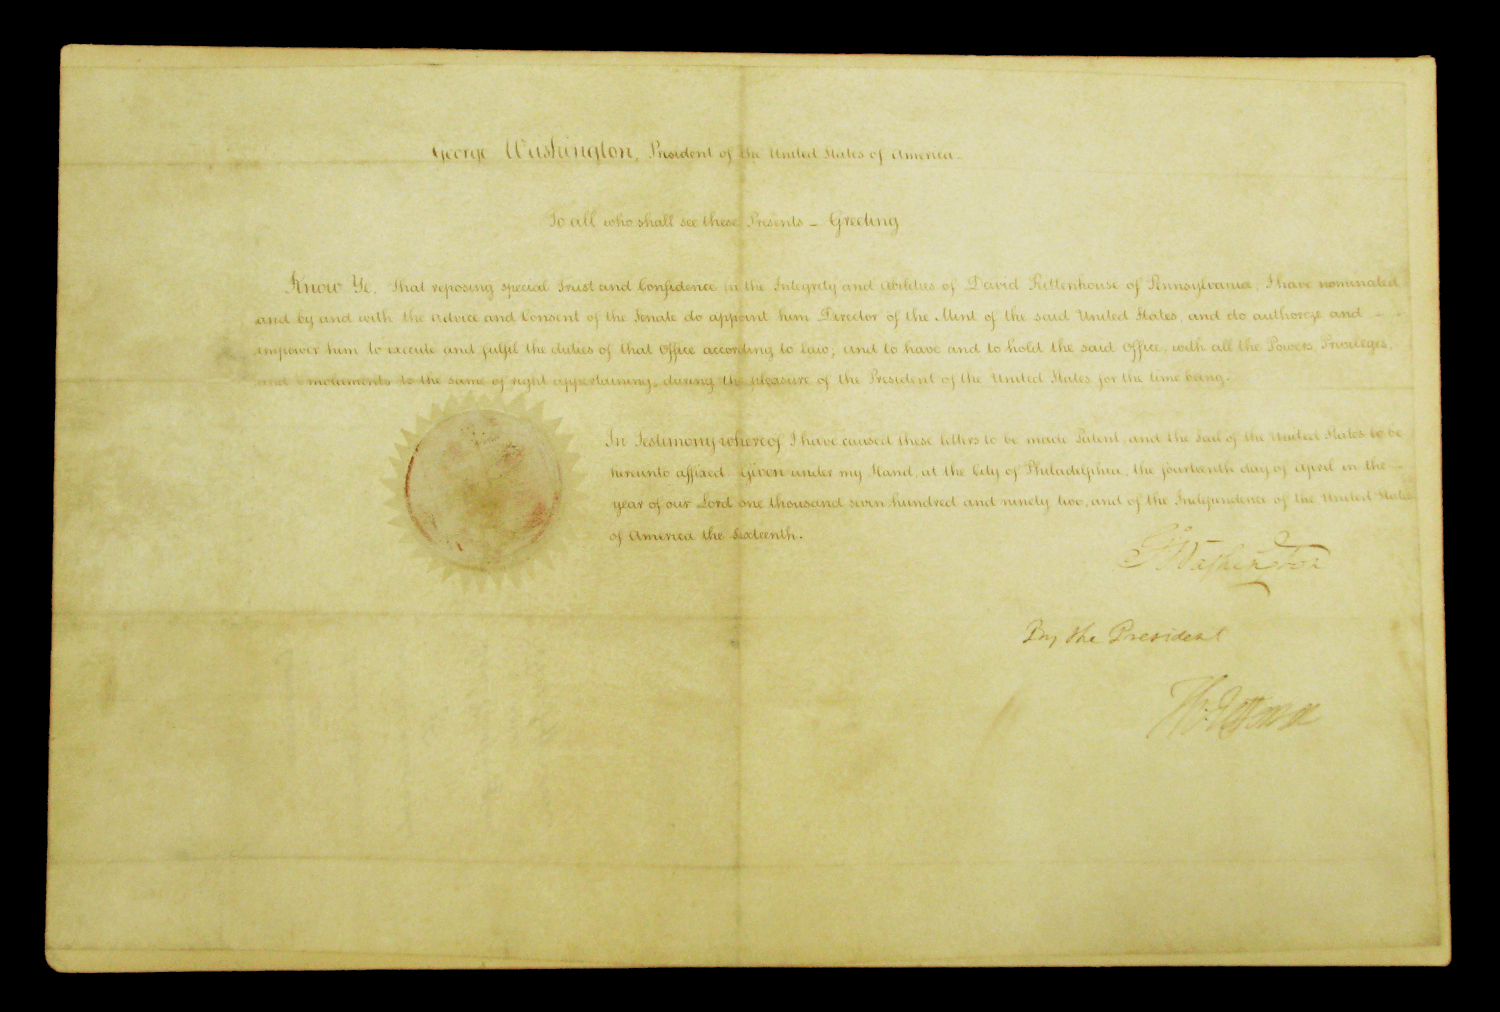 George Washington, President of the United States of America.
To all who shall see these Presents – Greeting
Know Ye, That reposing special Trust and Confidence in the Integrity and Abilities of David Rittenhouse of Pennsylvania, I have nominated
and by and with the Advice and Consent of the Senate do appoint him Director of the Mint of the said United States, and do authorize and
empower him to execute and fulfil the duties of that Office according to law; and to have and to hold the said Office, with all the Powers, Privileges,
and Emoluments to the same of right appertaining, during the pleasure of the President of the United States for the time being.
In Testimony whereof I have caused these letters to be made Patent, and the Seal of the United States to be
hereunto affixed. Given under my Hand, at the City of Philadelphia, the fourteenth day of April in the
year of our Lord one thousand seven hundred and ninety two, and of the Independence of the United States
of America the Sixteenth.
G Washington
By the President
Th: Jefferson